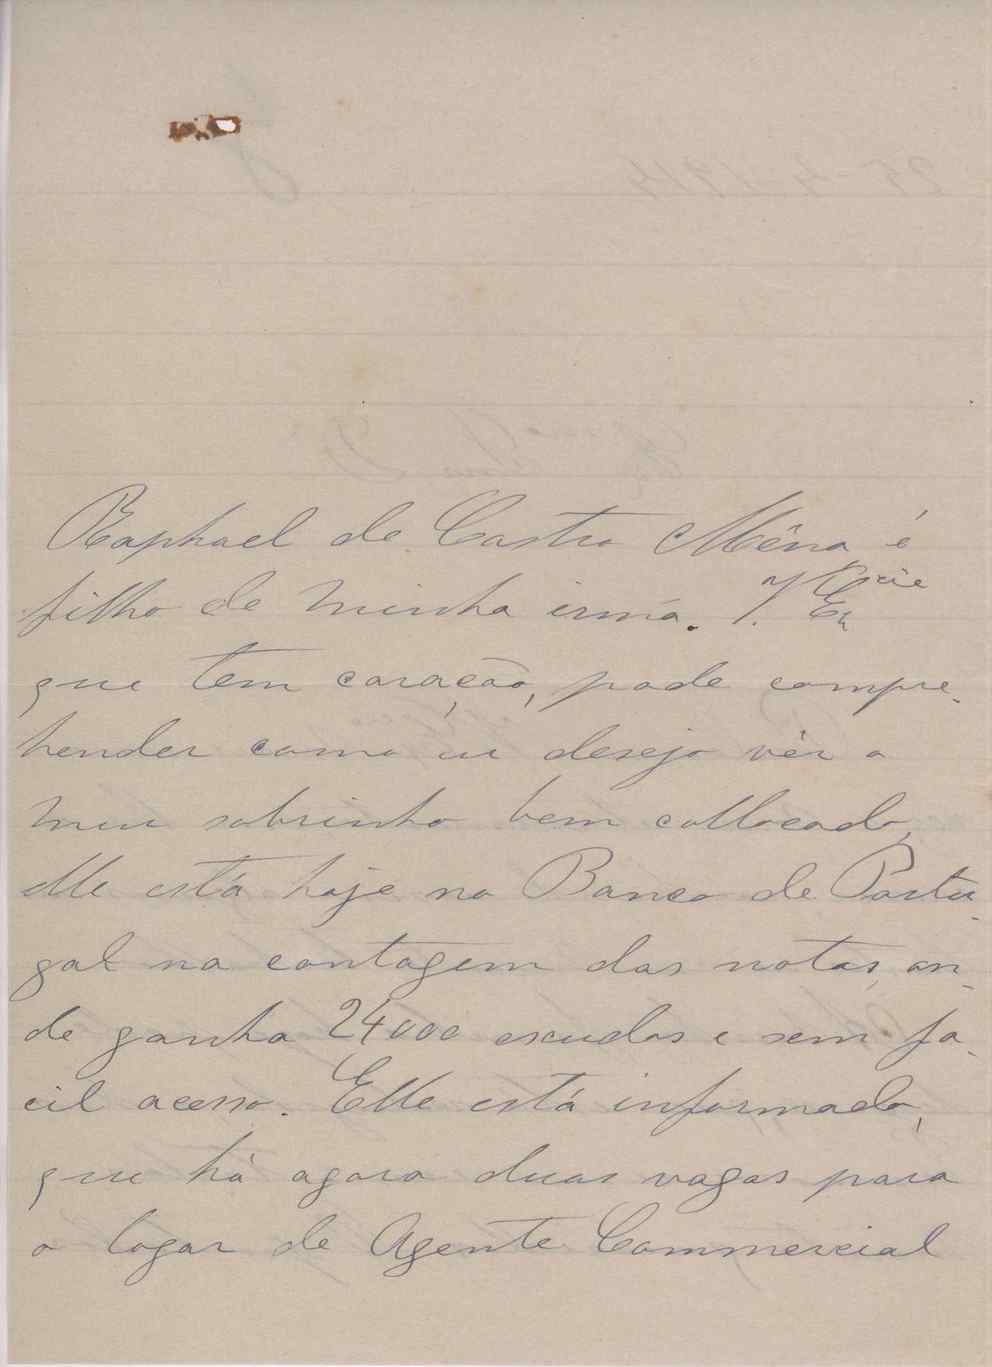 Raphael de Castro Mêna é
filho de minha irmã. V. Excia
que tem coração, pode compre-
hender como eu desejo vêr o
meu sobrinho bem collocado,
elle está hoje no Banco de Portu-
gal na contagem das notas, on-
de ganha 24000 escudos e sem fa-
cil acesso. Elle está informado,
que há agora duas vagas para
o logar de Agente Commercial